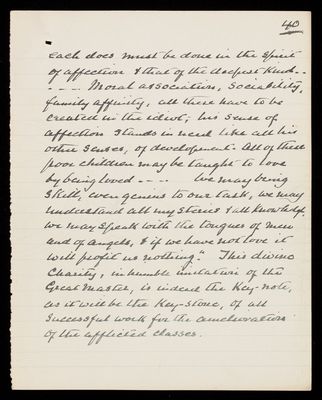 40
each does must be done in the spirit
of affection & that of the deepest kind - -
- - - - Moral association, sociability,
family affinity, all these have to be
created in the idiot; his sense of
affection stands in need like all his
other senses, of development. All of these
poor children may be taught to love
by being loved - - - - We may bring
skill, even genius to our task, we may
understand all mysteries & all knowledge,
we may speak with the tongues of men
and of angels, & if we have not love it
will profit us nothing." This divine
Charity, in humble imitation of the
Great Master, is indeed the Key-note,
as it will be the Key-stone, of all
successful work for the amelioration
of the afflicted classes.